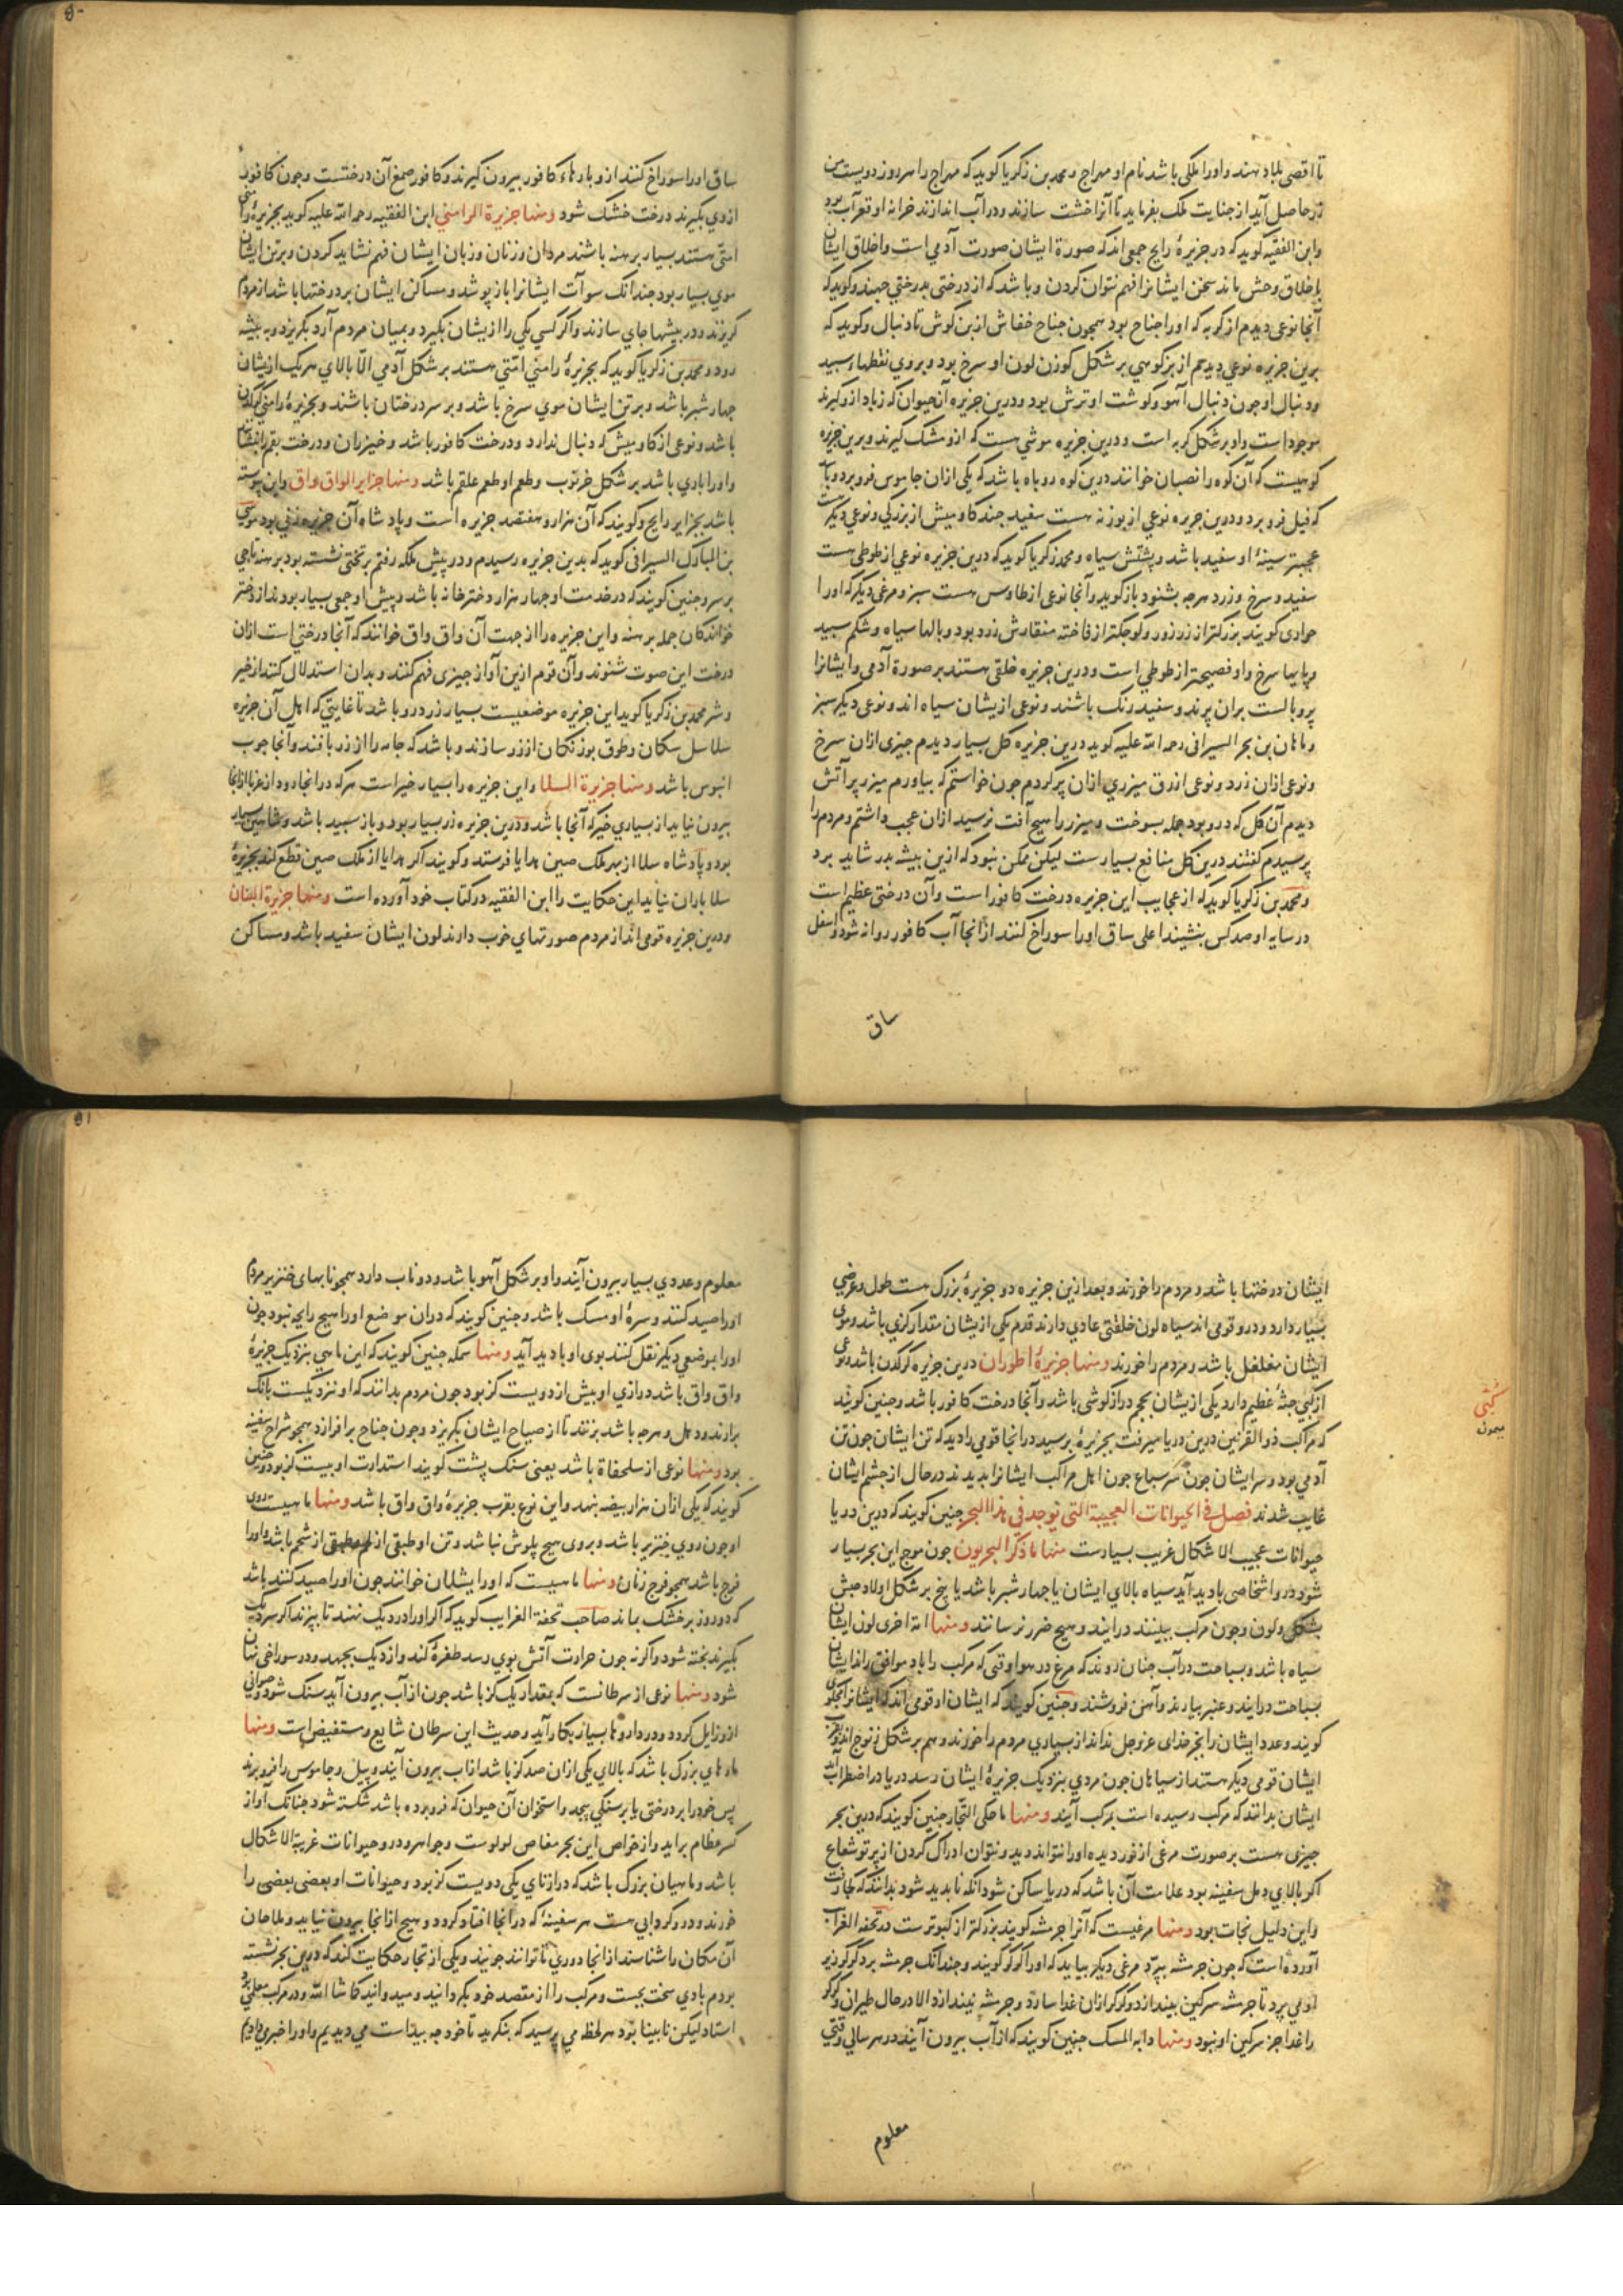 تا اقصی بلاد هند و اورا ملکی باشد نام او مهراج و محمد بن زکریا کوید که مهراج را هر روز دویست من
زر حاصل آید از جنایت ملک بفرماید تا آنرا خشت سازند و در آب اندازند خزانه او قعر آب بود
و ابن الفقیه کوید که در جزیرهٔ رایج جمعی اند که صورة ایشان صورت آدمی است و اخلاق ایشان
باخلاق وحش ماند سخن ایشانرا فهم نتوان کردن و باشد که از درختی بدرختی جهند و کوید که
آنجا نوعی دیدم از کربه که اورا جناح بود همچون جناح خفاش از بن کوش تا دنبال و کوید که
برین جزیره نوعی دیدم از بزکوهی بر شکل کوزن لون او سرخ بود و بروی نقطهاء سپید
و دنبال او چون دنبال آهو و کوشت او ترش بود و درین جزیره آن حیوان که زباد ازو کیرند
موجود است و او بر شکل کربه است و درین جزیره موشی هست که ازو مشک کیرند و برین جزیره
کوهیست که آن کوه را نصبان خوانند درین کوه روباه باشد که یکی ازان جاموس فرو برد و باشد
که فیل فرو برد و درین جزیره نوعی از بوزنه هست سفید چند کاومیش از بزرکی و نوعی دیکر هست
عجبتر سینهٔ او سفید باشد و پشتش سیاه و محمد زکریا کوید که درین جزیره نوعی از طوطی هست
سفید و سرخ و زرد هرچه بشنود باز کوید و آنجا نوعی از طاوس هست سبز و مرغی دیکر که اورا
حوادی کویند بزرکتر از زرزور و کوچکتر از فاخته منقارش زرد بود و بالها سیاه و شکم سپید
و پایها سرخ و او فصیحتر از طوطی است و درین جزیره خلقی هستند بر صورة آدمی و ایشانرا
پر و بالست بران پرند و سفید رنک باشند و نوعی از یشان سیاه اند و نوعی دیکر سبز
و ماهان بن بحر السیرافی رحمه الله علیه کوید درین جزیره کل بسیار دیدم چیزی ازان سرخ
و نوعی ازان زرد و نوعی ازرق میزری ازان پر کردم چون خواستم که بیاورم میزر پر آتش
دیدم آن کل که درو بود جمله بسوخت و میزر را هیچ آفت نرسید ازان عجب داشتم و مردم را
پرسیدم کفتند درین کل منافع بسیارست لیکن ممکن نبود که ازین بیشه بدر شاید برد
و محمد بن زکریا کوید که از عجایب این جزیره درخت کافور است و آن درختی عظیم است
در سایه او صد کس بنشیند اعلی ساق اورا سوراخ کنند از انجا آب کافور روانه شود و اسفل
ساق
ساق اورا سوراخ کنند ازو بارهاء کافور بیرون کیرند و کافور صمغ آن درختست و چون کافور
ازوی بکیرند درخت خشک شود ومنها جزیرة الرامنی ابن الفقیه رحمه الله علیه کوید بجزیرهٔ رامنی
امتی هستند بسیار برهنه باشند مردان و زنان و زبان ایشان فهم نشاید کردن و بر تن ایشان
موی بسیار بود چندانک سوآت ایشانرا باز پوشد و مساکن ایشان بر درختها باشد از مردم
کریزند و در بیشها جای سازند و اکر کسی یکی را ازیشان بکیرد و بمیان مردم آرد بکریزد و به بیشه
رود و محمد بن زکریا کوید که بجزیرهٔ رامنی امتی هستند بر شکل آدمی الا بالای هر یک ازیشان
چهار شبر باشد و بر تن ایشان موی سرخ باشد و بر سر درختان باشند و بجزیرهٔ رامنی کرکدن
باشد و نوعی از کاومیش که دنبال ندارد و درخت کافور باشد و خیزران و درخت بقم
و اورا باری باشد بر شکل خرنوب و طعم او طعم علقم باشد ومنها جزایر الواق واق و این پیوسته
باشد بجزایر رایج و کویند که آن هزار و هفتصد جزیره است و پادشاه آن جزیره زنی بود موسی
بن المبارک السیرافی کوید که بدین جزیره رسیدم و در پیش ملکه رفتم بر تختی نشسته بود برهنه تاجی
بر سر و چنین کویند که در خدمت او چهار هزار دختر خانه باشد و پیش او جمعی بسیار بودند از دختر
خوانندکان جمله برهنه و این جزیره را از جهت آن واق واق خوانند که آنجا درختی است ازان
درخت این صوت شنوند و آن قوم ازین آواز چیزی فهم کنند و بدان استدلال کنند از خیر
و شر محمد بن زکریا کوید این جزیره موضعیست بسیار زر درو باشد تا غایتی که اهل آن جزیره
سلاسل سکان و طوق بوزنکان از زر سازند و باشد که جامه را از زر بافند و آنجا چوب
انبوس باشد ومنها جزیرة السلا و این جزیره را بسیار خیر است هر که در آنجا رود از غربا از انجا
بیرون نیاید از بسیاری خیر که آنجا باشد و درین جزیره زر بسیار بود و باز سپید باشد و شاهین بسیار
بود و پادشاه سلا از بهر ملک صین هدایا فرستد و کویند اکر هدایا از ملک صین قطع کند بجزیرهٔ
سلا باران نیاید این حکایت را ابن الفقیه در کتاب خود آورده است ومنها جزیرة البنان
و درین جزیره قومی اند از مردم صورتهای خوب دارند لون ایشان سفید باشد و مساکن
ایشان درختها باشد و مردم را خورند و بعد ازین جزیره دو جزیرهٔ بزرک هست طول و عرضی
بسیار دارد و درو قومی اند سیاه لون خلقتی عادی دارند قدم یکی ازیشان مقدار کزی باشد و موی
ایشان مغلغل باشد و مردم را خورند ومنها جزیرهٔ اطوران درین جزیره کرکدن باشد و نوعی
از کپی جثهٔ عظیم دارد یکی ازیشان بحجم درازکوشی باشد و آنجا درخت کافور باشد و چنین کویند
که مراکب ذوالقرنین درین دریا میرفت بجزیرهٔ برسید در آنجا قومی را دید که تن ایشان چون تن
آدمی بود و سر ایشان چون سر سباع چون اهل مراکب ایشانرا بدیدند در حال از چشم ایشان
غایب شدند فصل فی الحیوانات العجیبة التی توجد فی هذا البحر چنین کویند که درین دریا
حیوانات عجیب الاشکال غریب بسیارست منها ما ذکر البحریون چون موج این بحر بسیار
شود درو اشخاصی بادید آید سیاه بالای ایشان یا چهار شبر باشد یا پنج بر شکل اولاد حبش
بشکل و لون و چون مرکب ببینند درایند و هیچ ضرر نرسانند ومنها امة اخری لون ایشان
سیاه باشد و بسباحت در آب چنان روند که مرغ در هوا و وقتی که مرکب را باد موافق راند ایشان
بسباحت درایند و عنبر بیارند و آهن فروشند و چنین کویند که ایشان او قومی اند که ایشانرا
کویند و عدد ایشان را بجز خدای عزوجل نداند از بسیاری مردم را خورند و هم بر شکل زنوج اند
ایشان قومی دیکر هستند از سیاهان چون مردی بنزدیک جزیرهٔ ایشان رسد دریا در اضطراب آید
ایشان بدانند که مرکب رسیده است بمرکب آیند ومنها ما حکی التجار چنین کویند که درین بحر
چیزی هست بر صورت مرغی از نور دیده اورا نتواند دید و نتوان ادراک کردن از پرتو شعاع
اکر بالای دهل سفینه بود علامت آن باشد که دریا ساکن شود انکه ناپدید شود ندانند که کجا رفت
و این دلیل نجات بود ومنها مرغیست که آنرا جرمشه کویند بزرکتر از کبوترست در تحفه الغرایب
آورده است که چون جرمشه بپرد مرغی دیکر بیاید که اورا کرکر کویند و چندانک جرمشه پرد کرکر زیر
او می پرد تا جرمشه سرکین بیندازد و کرکر ازان غدا سازد و جرمشه نیندازد الا در حال طیران و کرکر
را غدا جز سرکین او نبود ومنها دابه المسک چنین کویند که از آب بیرون آیند در هر سالی وقتی
کپی
میمون
معلوم
معلوم و عددی بسیار بیرون آیند و او بر شکل آهو باشد و دو ناب دارد همچو نابهای خنزیر مردم
اورا صید کنند و سرهٔ او مسک باشد و چنین کویند که دران موضع اورا هیچ رایحه نبود چون
اورا بموضعی دیکر نقل کنند بوی او بادید آید ومنها سمکه چنین کویند که این ماهی بنزدیک جزیرهٔ
واق واق باشد درازی او بیش از دویست کز بود چون مردم بدانند که او نزدیکست بانک
برارند و دهل و هرچه باشد بزنند تا از صیاح ایشان بکریزد و چون جناح برافرازد همچو شراع سفینه
بود ومنها نوعی از سلحفاة باشد یعنی سنک پشت کویند استدارت او بیست کز بود و چنین
کویند که یکی ازان هزار بیضه بنهد و این نوع بقرب جزیرهٔ واق واق باشد ومنها ماهیست روی
او چون روی خنزیر باشد و بروی هیچ پلوش نباشد و تن او طبقی از لحم و طبقی از شحم باشد و اورا
فرج باشد همچو فرج زنان ومنها ماهیست که اورا ایشلمان خوانند چون اورا صید کنند باشد
که دو روز بر خشک بماند صاحب تحفة الغرایب کوید که اکر اورا در دیک نهند تا بپزند اکر سر دیک
بکیرند پخته شود و اکرنه چون حرارت آتش بوی رسد طفرهٔ کند و از دیک بجهد و در سوراخی نهان
شود ومنها نوعی از سرطانست که بمقدار یک کز باشد چون از آب بیرون آید سنک شود و حیوانی
ازو زایل کردد و در داروها بسیار بکار آید و حدیث این سرطان شایع و مستفیض است ومنها
مارهای بزرک باشد که بالای یکی ازان صد کز باشد از آب بیرون آیند و پیل و جاموس را فرو برند
پس خود را بر درختی یا بر سنکی پیچد و استخوان آن حیوان که فرو برده باشد شکسته شود چنانک آواز
کسر عظام براید و از خواص این بحر مغاص لولوست و جواهر و درو حیوانات غریبة الاشکال
باشد و ماهیان بزرک باشد که درازنای یکی دویست کز بود و حیوانات او بعضی بعضی را
خورند و درو کردابی هست هر سفینهٔ که در آنجا افتاد و کردد و هیچ از انجا بیرون نیاید و ملاحان
آن مکان را شناسند از انجا دوری تا توانند جویند و یکی از تجار حکایت کند که درین بحر نشسته
بودم بادی سخت بجست و مرکب را از مقصد خود بکردانید و میدوانید کما شا الله و در مرکب معلمی بود
استاد لیکن نابینا بود هر لحظه می پرسید که بنکرید تا خود چه پیداست می دیدیم و اورا خبر می دادیم